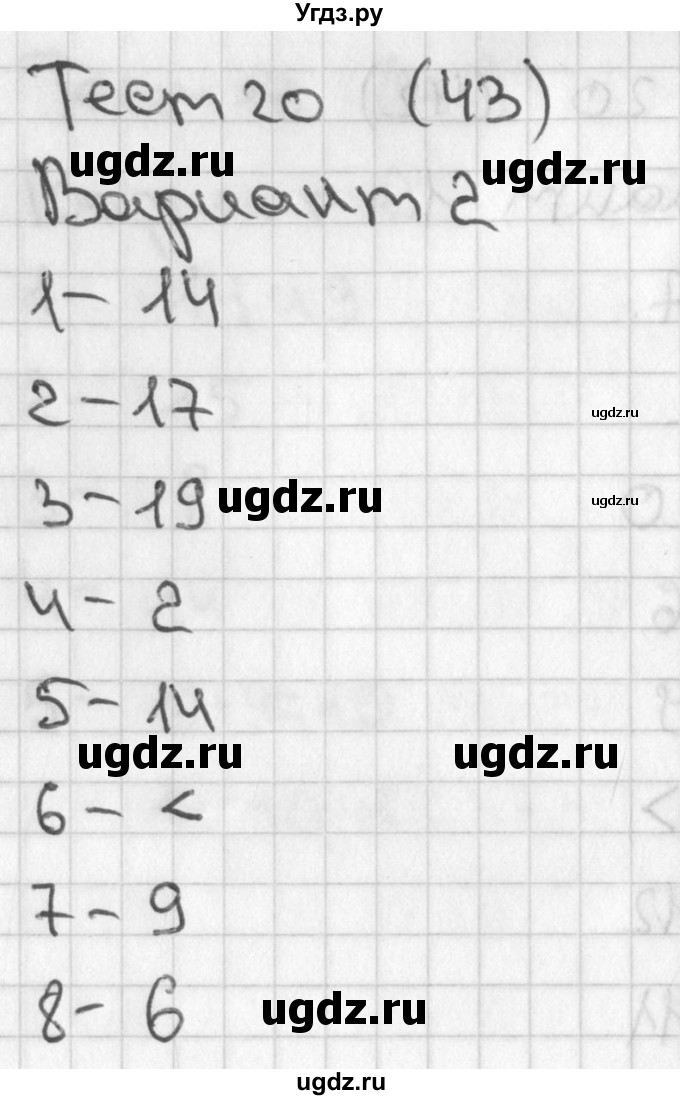 Угдз.ру
Тест 20 (43)
ugdz.ru
ugdz.ru
Вариант 2
1 - 14
2 - 17
ugdz.ru
3 - 19
ugdz.ru
ugdz.ru
4 - 2
5 - 14
ugdz.ru
ugdz.ru
6 - <
7 - 9
8 - 6
ugdz.ru
ugdz.ru